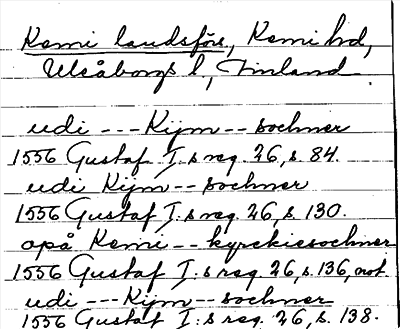 Kemi landsförs., Kemi hd,
Uleåborgs l., Finland.
udi --- Kijm -- sochner
1556 Gustaf I:s reg. 26, s. 84.
udi Kijm -- sochner
1556 Gustaf I:s reg. 26, s. 130.
opå Kemi -- kyrckiesochner
1556 Gustaf I:s reg 26, s. 136, not
udi --- Kijm -- sochner
1556 Gustaf I:s reg. 26, s. 138.